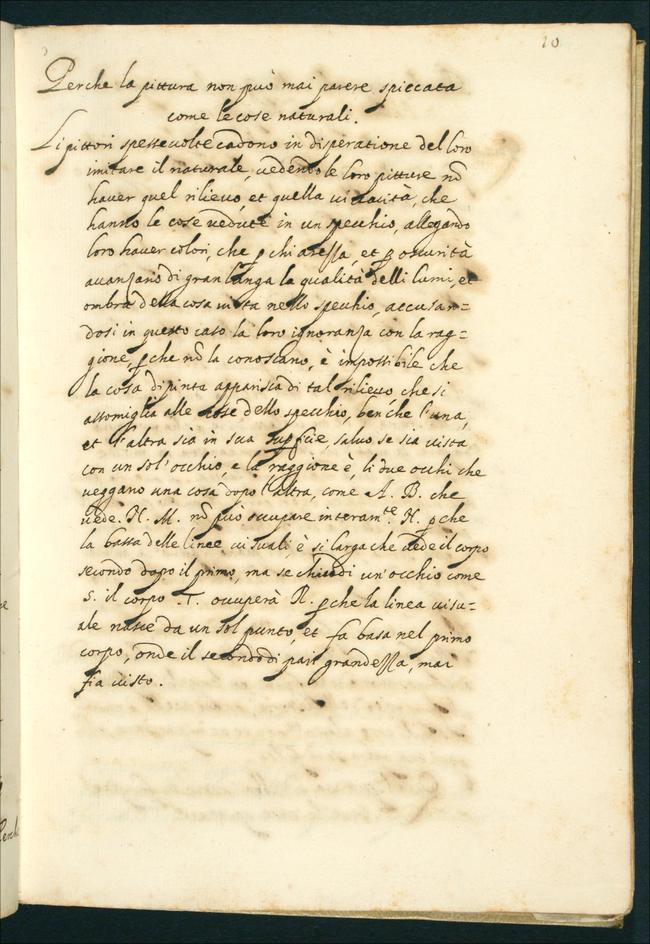 10
Perche la pittura non può mai parere spiccata
come le cose naturali.
Li pittori spesse volte cadono in disperatione del loro
imitare il naturale, vedendo le loro pitture nõ
haver quel rilievo, et quella vivacità, che
hanno le cose vedute in un specchio, allegando
loro haver colori, che ꝑ chiarezza, et ꝑ oscurità
avanzano di gran lunga la qualità delli lumi, et
ombra della cosa vista nello specchio, accusan=
dosi in questo caso la loro ignoranza con la rag=
gione, ꝑche nõ la conoscano, è impossibile che
la cosa dipinta apparisca di tal rilievo, che si
assomiglia alle cose dello specchio, benche l'una,
et l'altra sia in sua supficie, salvo se sia vista
con un sol'occhio, e la raggione è, li due occhi che
veggano una cosa dopo l'altra, come A. B. che
vede. N. M. nõ può occupare interam.te N. ꝑche
la bassa delle linee visuali è si larga che vede il corpo
secondo dopo il primo, ma se chiudi un'occhio come
S. il corpo .T. occuperà R. ꝑche la linea visu-
ale nasce da un sol punto, et fa basa nel primo
corpo, onde il secondo di pari grandezza, mai
fia visto.